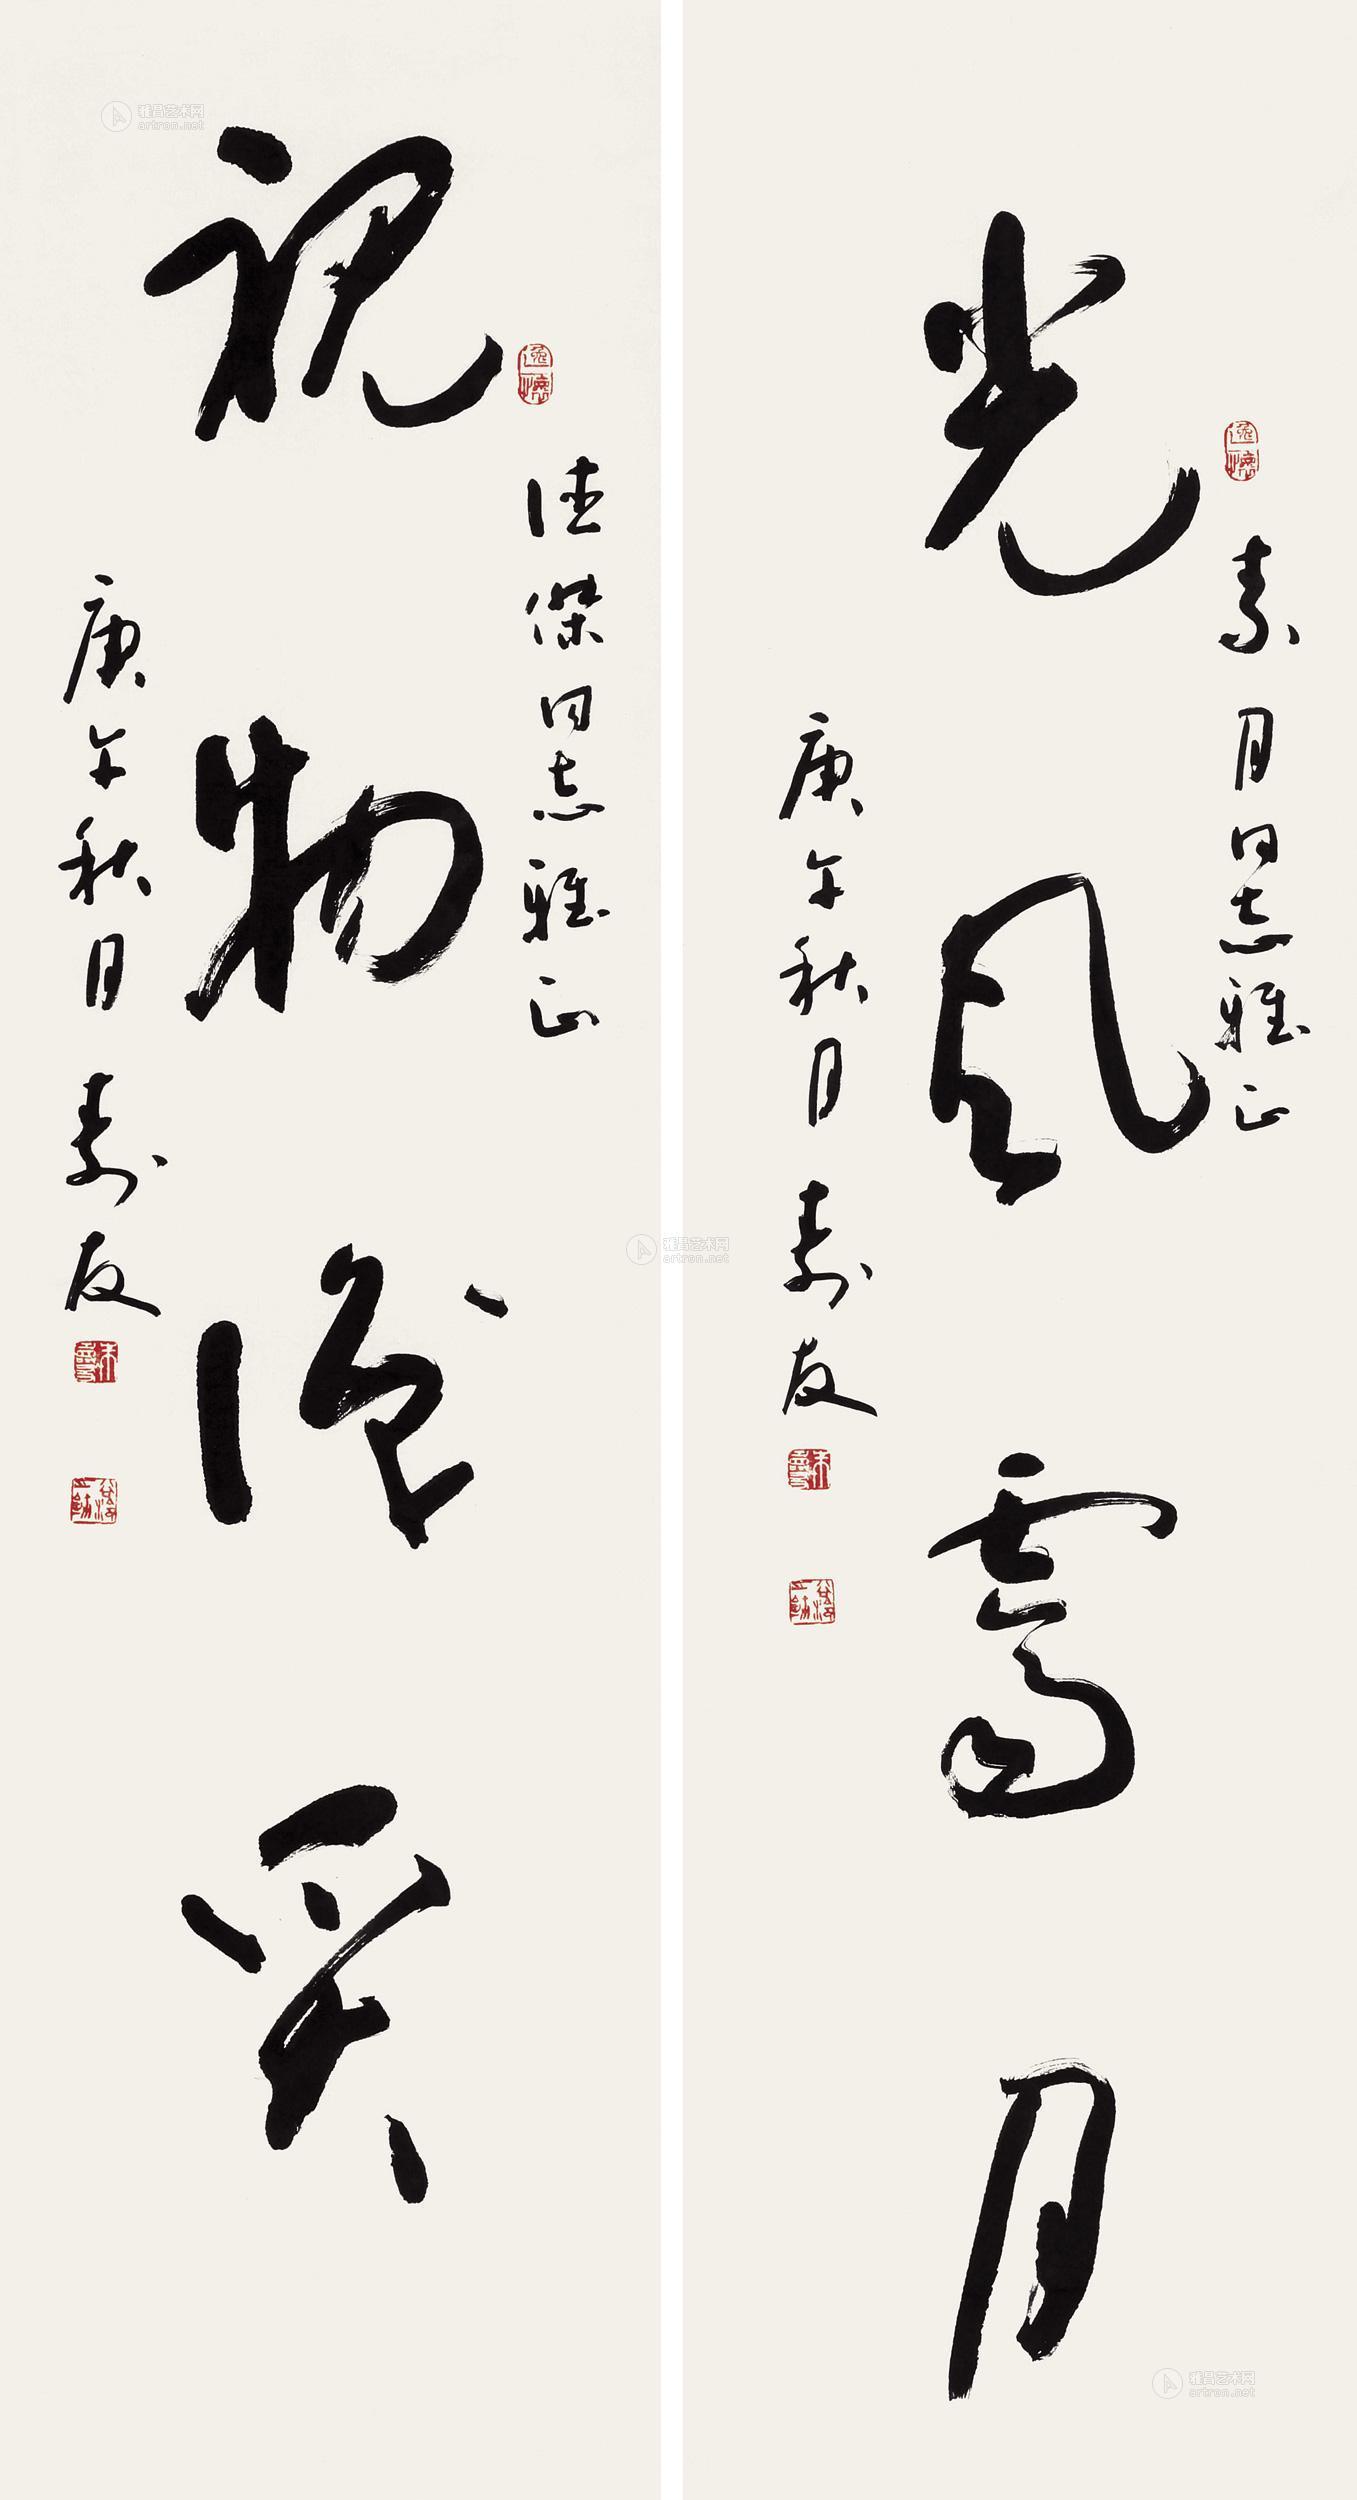 光風霽月
素月同志雅正
庚午秋月 壽友
視物
傑同志雅正
庚午秋月 壽友
雅昌艺术网
artron.net
雅昌艺术网
artron.net
雅昌艺术网
artron.net